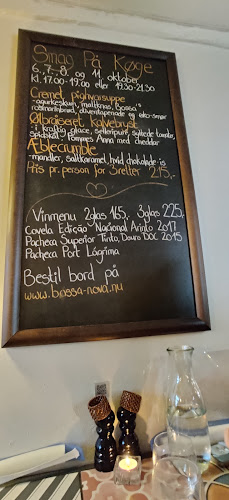 Smag På Køge
6, 7., 8. og 11. oktober
kl. 17.00-19.00 eller 19.30-21.30
Cremet pighvarsuppe
-agurkeskum, maltknas, Bossa's
rosmarinbrød, oliventapenade og esko-smør
Ølbraiseret kalvebryst
- kraftig glace, selleripuré, syltede tomater,
spidskål - Pommes Anna med cheddar
Æblecrumble
-mandler, saltkaramel, hvid chokolade-is
Pris pr. person for 3 retter 215,-
Vinmenu 2glas 165,- 3glas 225,-
Covela Edição Nacional Arinto 2017
Pacheca Superior Tinto, Douro DOC 2015
Pacheca Port Lágrima
Bestil bord på
www.bossa-nova.nu